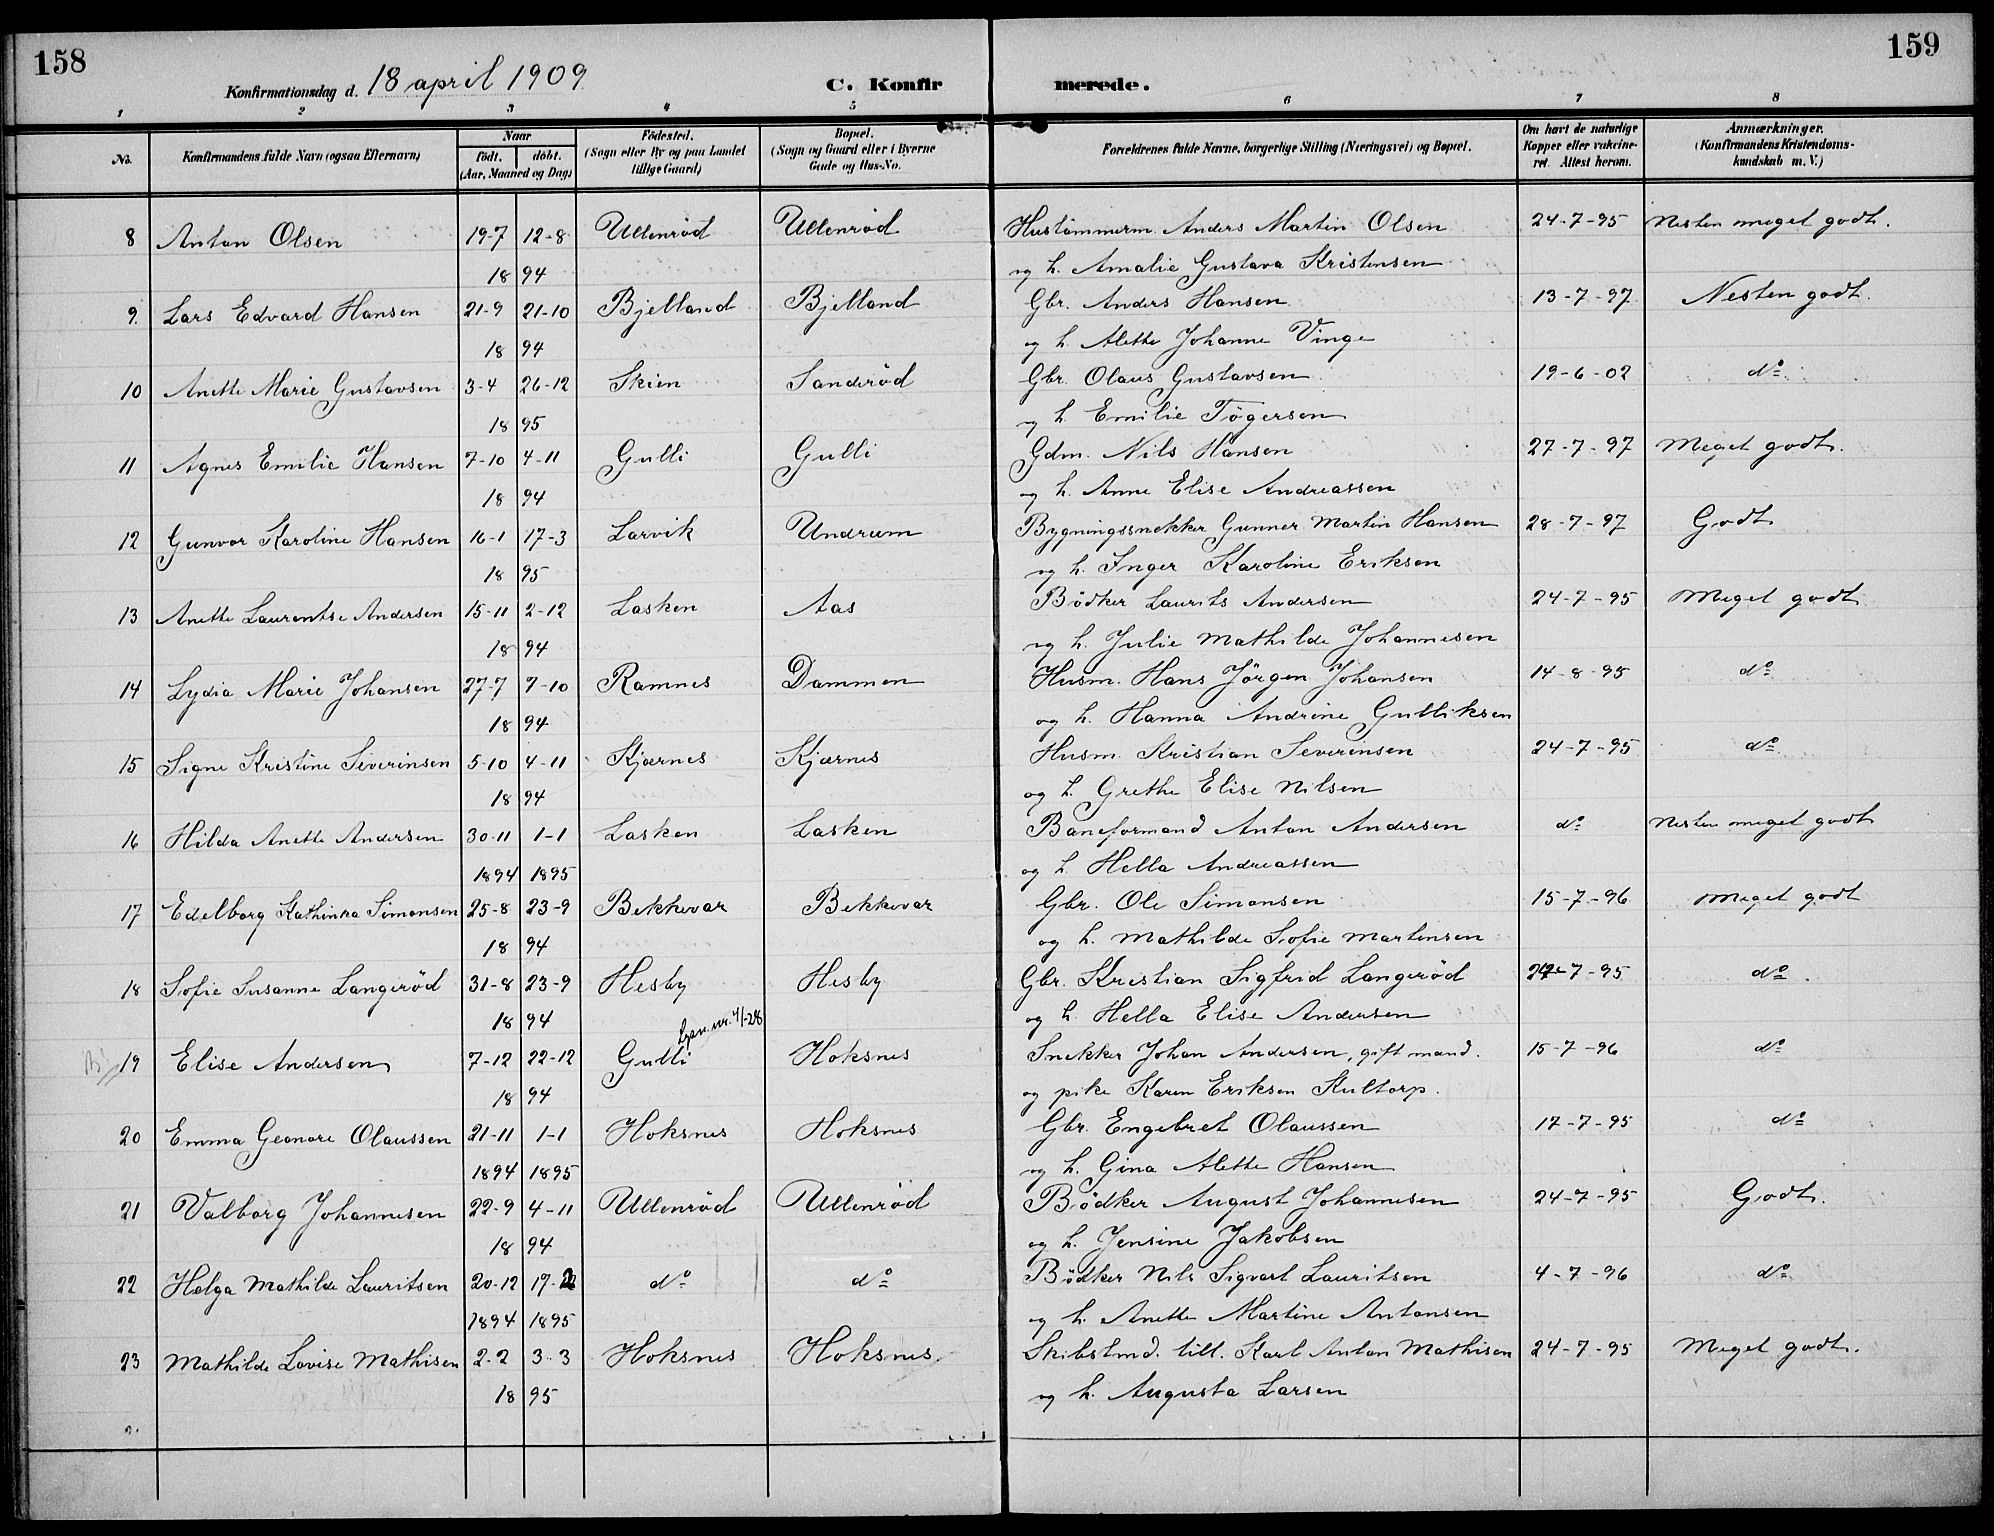 158
159
Konfirmationsdag d. 18 april 1909
C. Konfirmerede.
1 2 3 4 5 6 7 8
No. Konfirmandens fulde Navn (ogsaa Efternavn) Naar födt. döbt. (Aar, Maaned og Dag) Födested. (Sogn eller By og paa Landet tillige Gaard) Bopæl. (Sogn og Gaard eller i Byerne Gade og Hus-No. Forældrenes fulde Navne, borgerlige Stilling (Næringsvei) og Bopæl. Om havt de naturlige Kopper eller vakcineret. Attest herom. Anmærkninger. (Konfirmandens Kristendomskundskab m. V.)
8 Anton Olsen 19-7 12-8 Ullenröd Ullenröd Hustömmerm. Anders Martin Olsen 24-7-95 Nesten meget godt.
18 94 og h. Amalie Gustava Kristensen
9. Lars Edvard Hansen 21-9 21-10 Bjelland Bjelland Gbr. Anders Hansen 13-7-97 Nesten godt.
18 94 og h. Alette Johanne Vinge
10 Anette Marie Gustavsen 3-4 26-12 Skien Sanderöd Gbr. Olaus Gustavsen 19-6-02 do
18 95 og h. Emilie Tögersen
11 Agnes Emilie Hansen 7-10 4-11 Gulli Gulli Gdm. Nils Hansen 27-7-97 Meget godt.
18 94 og h. Anne Elise Andreassen
12 Gunvor Karoline Hansen 16-1 17-3 Larvik Undrum Bygningssnekker Gunner Martin Hansen 28-7-97 Godt
18 95 og h. Inger Karoline Eriksen
13 Anette Laurentse Andersen 15-11 2-12 Lasken Aas Bödker Laurits Andersen 24-7-95 Meget godt
18 94 og h. Julie Mathilde Johannesen
14 Lydia Marie Johansen 27-7 7-10 Ramnes Dammen Husm. Hans Jörgen Johansen 14-8-95 do
18 94 og h. Hanna Andrine Gulliksen
15 Signe Kristine Severinsen 5-10 4-11 Kjærnes Kjærnes Husm. Kristian Severinsen 24-7-95 do
18 94 og h. Grethe Elise Nilsen
16 Hilda Anette Andersen 30-11 1-1 Lasken Lasken Baneformand Anton Andersen do Nesten meget godt
1894 1895 og h. Hella Andreassen
17 Edelborg Kathinka Simonsen 25-8 23-9 Bekkevar Bekkevar Gbr. Ole Simonsen 15-7-96 Meget godt
18 94 og h. Mathilde Sofie Martinsen
18 Sofie Susanne Langeröd 31-8 23-9 Hesby Hesby Gbr. Kristian Sigfrid Langeröd 24-7-95 do
18 94 og h. Hella Elise Andersen
19 Elise Andersen 7-12 22-12 Gulli Hoksnes Snekker Johan Andersen, gift mand. 15-7-96 do
18 94 og pike Karen Eriksen Kultorp.
20 Emma Geonore Olaussen 21-11 1-1 Hoksnes Hoksnes Gbr. Engebret Olaussen 17-7-95 do
1894 1895 og h. Gina Alette Hansen
21 Valborg Johannesen 22-9 4-11 Ullenröd Ullenröd Bödker August Johannesen 24-7-95 Godt.
18 94 og h. Jensine Jakobsen
22 Helga Mathilde Lauritsen 20-12 17-2 do do Bödker Nils Sigvart Lauritsen 4-7-96 do
1894 1895 og h. Anette Martine Antonsen
23 Mathilde Lovise Mathisen 2-2 3-3 Hoksnes Hoksnes. Skibstmd. till. Karl Anton Mathisen 24-7-95 Meget godt.
18 95 og h. Augusta Larsen